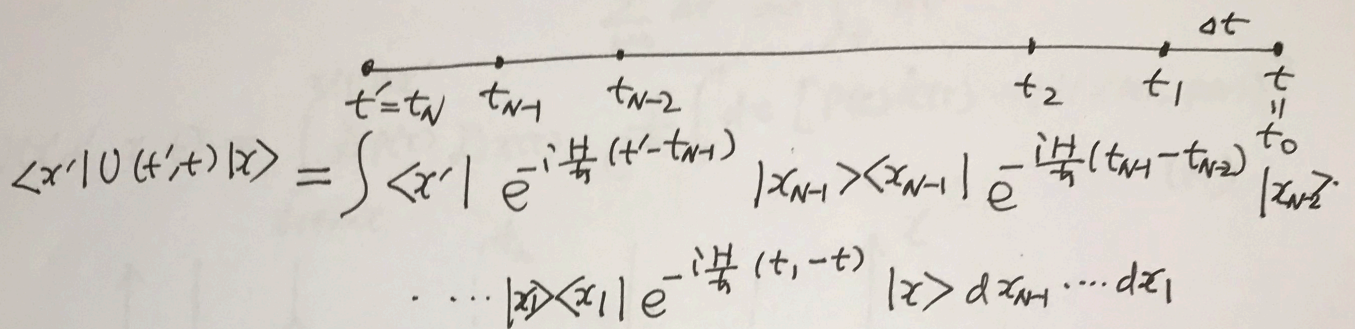 Δt
t'=t_N t_{N-1} t_{N-2} t_2 t_1 t
=
t_0
<x'|U(t',t)|x> = ∫ <x'| e^{-i\frac{H}{ħ}(t'-t_{N-1})} |x_{N-1}><x_{N-1}| e^{-\frac{iH}{ħ}(t_{N-1}-t_{N-2})} |x_{N-2}>·
· ···· |x_1><x_1| e^{-i\frac{H}{ħ}(t_1-t)} |x> dx_{N-1} ···· dx_1